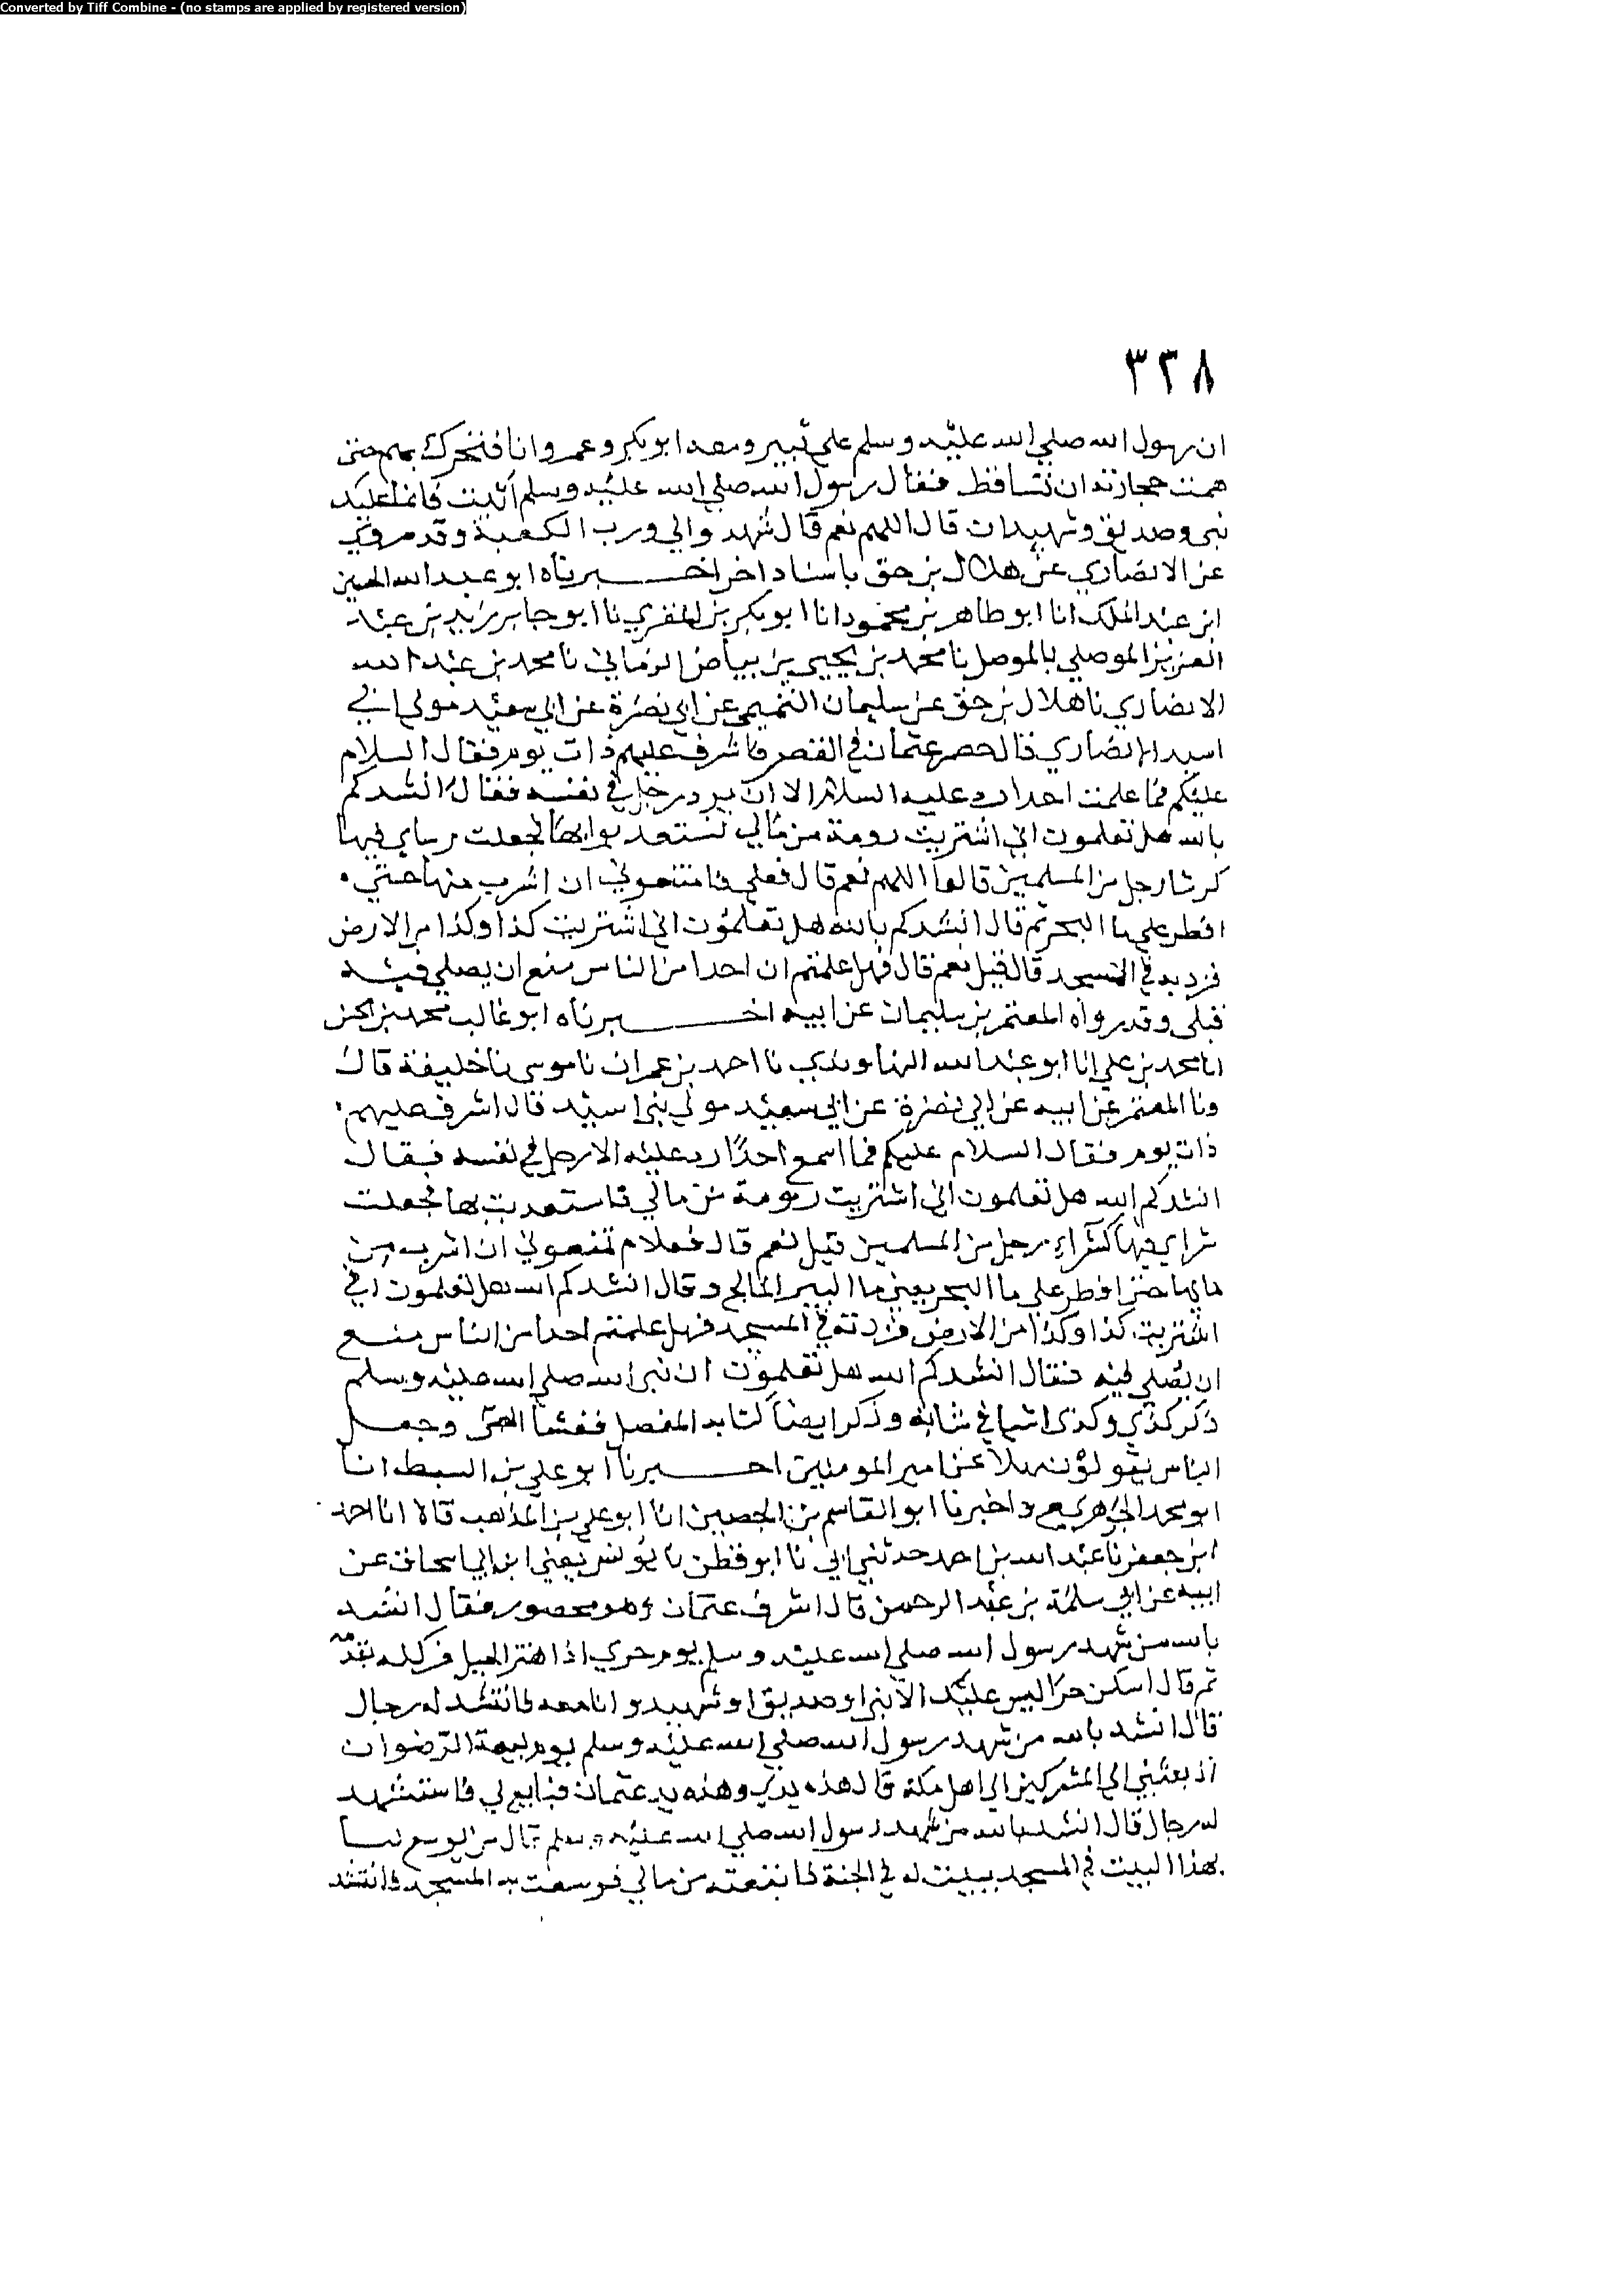 Converted by Tiff Combine - (no stamps are applied by registered version)
٣٣٨
ان رسول الله صلي الله عليه وسلم علي ثبير ومعه ابو بكر وعمر وانا فتحرك بهم حتى
همت حجارته ان تتساقط فقال رسول الله صلي الله عليه وسلم اثبت فانما عليك
نبي وصديق وشهيدان قال اللهم نعم قال شهدوا لي ورب الكعبة وقد روي
عن الانصاري عن هلال بن حق باسناد اخر اخبرناه ابو عبد الله الحسين
ابن عبد الملك انا ابو طاهر بن محمود انا ابو بكر بن المقري نا ابو جابر زيد بن عبد
العزيز الموصلي بالموصل نا محمد بن يحيى بن بياض الزماني نا محمد بن عبد الله
الانصاري نا هلال بن حق عن سليمان التيمي عن ابي نضرة عن ابي سعيد مولى ابي
اسيد الانصاري قال حصر عثمان في القصر فاشرف عليهم ذات يوم فقال السلام
عليكم فما علمت احدا رد عليه السلام الا ان يرد رجل في نفسه فقال انشدكم
بالله هل تعلمون اني اشتريت رومة من مالي لنستعذبوا بها فجعلت رساي فيها
كرشا رجل من المسلمين قالوا اللهم نعم قال فعلى ما تمنعوني ان اشرب منها حتى
افطر علي ما البحر ثم قال انشدكم بالله هل تعلمون اني اشتريت كذا وكذا من الارض
فزدته في المسجد قال قيل نعم قال فهل علمتم ان احدا من الناس منع ان يصلي فيه
قبلي وقد رواه المعتمر بن سليمان عن ابيه اخبرناه ابو غالب محمد بن الحسن
انا محمد بن علي انا ابو عبد الله النهاوندي نا احمد بن عمران نا موسى نا خليفة قال
ونا المعتمر عن ابيه عن ابي نضرة عن ابي سعيد مولي بني اسيد قال اشرف عليهم
ذات يوم فقال السلام عليكم فما اسمع احدا رد عليه الا رجل في نفسه فقال
انشدكم الله هل تعلمون اني اشتريت رومة من مالي فاستعذبت بها فجعلت
شراي فيها كشراء رجل من المسلمين قيل نعم قال فعلام تمنعوني ان اشرب من
مايها حتى افطر على ما البحر يعني ما البير المالح وقال انشدكم الله هل تعلمون اني
اشتريت كذا وكذا من الارض فزدته في المسجد فهل علمتم احدا من الناس منع
ان يصلي فيه فقال انشدكم الله هل تعلمون ان نبي الله صلي الله عليه وسلم
ذكر كذي وكذي اشيا في شانه وذكر ايضا كتابه المفصل ففشا وجعل
الناس يقولون مهلا عن امير المومنين اخبرنا ابو علي بن السبط انا
ابو محمد الجوهري ح واخبرنا ابو القاسم بن الحصين انا ابو علي بن المذهب قالا انا احمد
ابن جعفر نا عبد الله بن احمد حدثني ابي نا ابو قطن نا يونس يعني ابن ابي اسحاق عن
ابيه عن ابي سلمة بن عبد الرحمن قال اشرف عثمان وهو محصور فقال انشد
بالله من شهد رسول الله صلي الله عليه وسلم يوم حري اذا اهتز الجبل فركله بقدمه
ثم قال اسكن حرا ليس عليك الا نبي او صديق او شهيد وانا معه فانتشد له رجال
قال انشد بالله من شهد رسول الله صلي الله عليه وسلم يوم بيعة الرضوان
اذ بعثني الي المشركين الي اهل مكة قال هذه يدي وهذه يد عثمان فبايع لي فاستشهد
له رجال قال انشد بالله من شهد رسول الله صلي الله عليه وسلم قال من يوسع لنا
بهذا البيت في المسجد ببيت له في الجنة فابتعته من مالي فوسعت به المسجد فانتشد